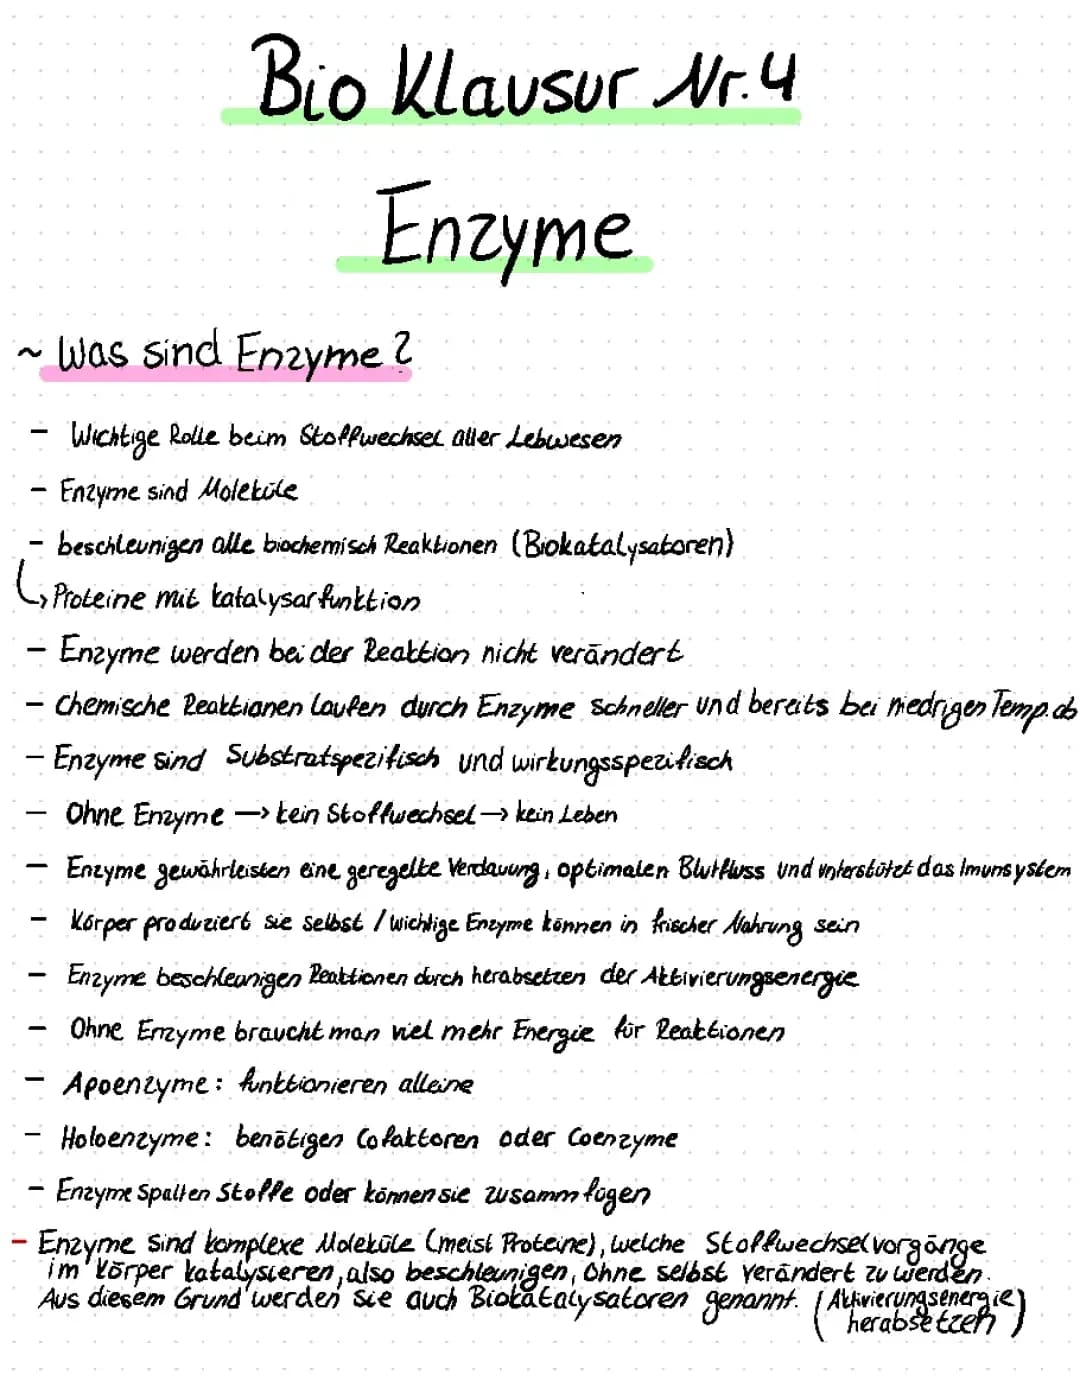 Bio Klausur Nr. 4
Enzyme
~ Was sind Enzyme?
- Wichtige Rolle beim Stoffwechsel aller Lebwesen
- Enzyme sind Moleküle
- beschleunigen alle biochemisch Reaktionen (Biokatalysatoren)
↳ Proteine mit katalysarfunktion
- Enzyme werden bei der Reaktion nicht verändert
- Chemische Reaktionen laufen durch Enzyme schneller und bereits bei niedrigen Temp. ab
- Enzyme sind Substratspezifisch und wirkungsspezifisch
- Ohne Enzyme → kein Stoffwechsel → kein Leben
- Enzyme gewährleisten eine geregelte Verdauung, optimalen Blutfluss und unterstützt das Imunsystem
- Körper produziert sie selbst / wichtige Enzyme können in frischer Nahrung sein
- Enzyme beschleunigen Reaktionen durch herabsetzen der Aktivierungsenergie
- Ohne Enzyme braucht man viel mehr Energie für Reaktionen
- Apoenzyme: funktionieren alleine
- Holoenzyme: benötigen Cofaktoren oder Coenzyme
- Enzyme Spalten Stoffe oder können sie zusamm fügen
- Enzyme sind komplexe Moleküle (meist Proteine), welche Stoffwechselvorgänge
im Körper katalysieren, also beschleunigen, Ohne selbst verändert zu werden.
Aus diesem Grund werden sie auch Biokatalysatoren genannt. (Aktivierungsenergie
herabsetzen)